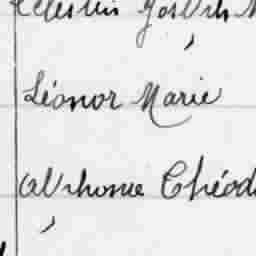 Célestin Joseph
Léonor Marie
Alphonse Théod